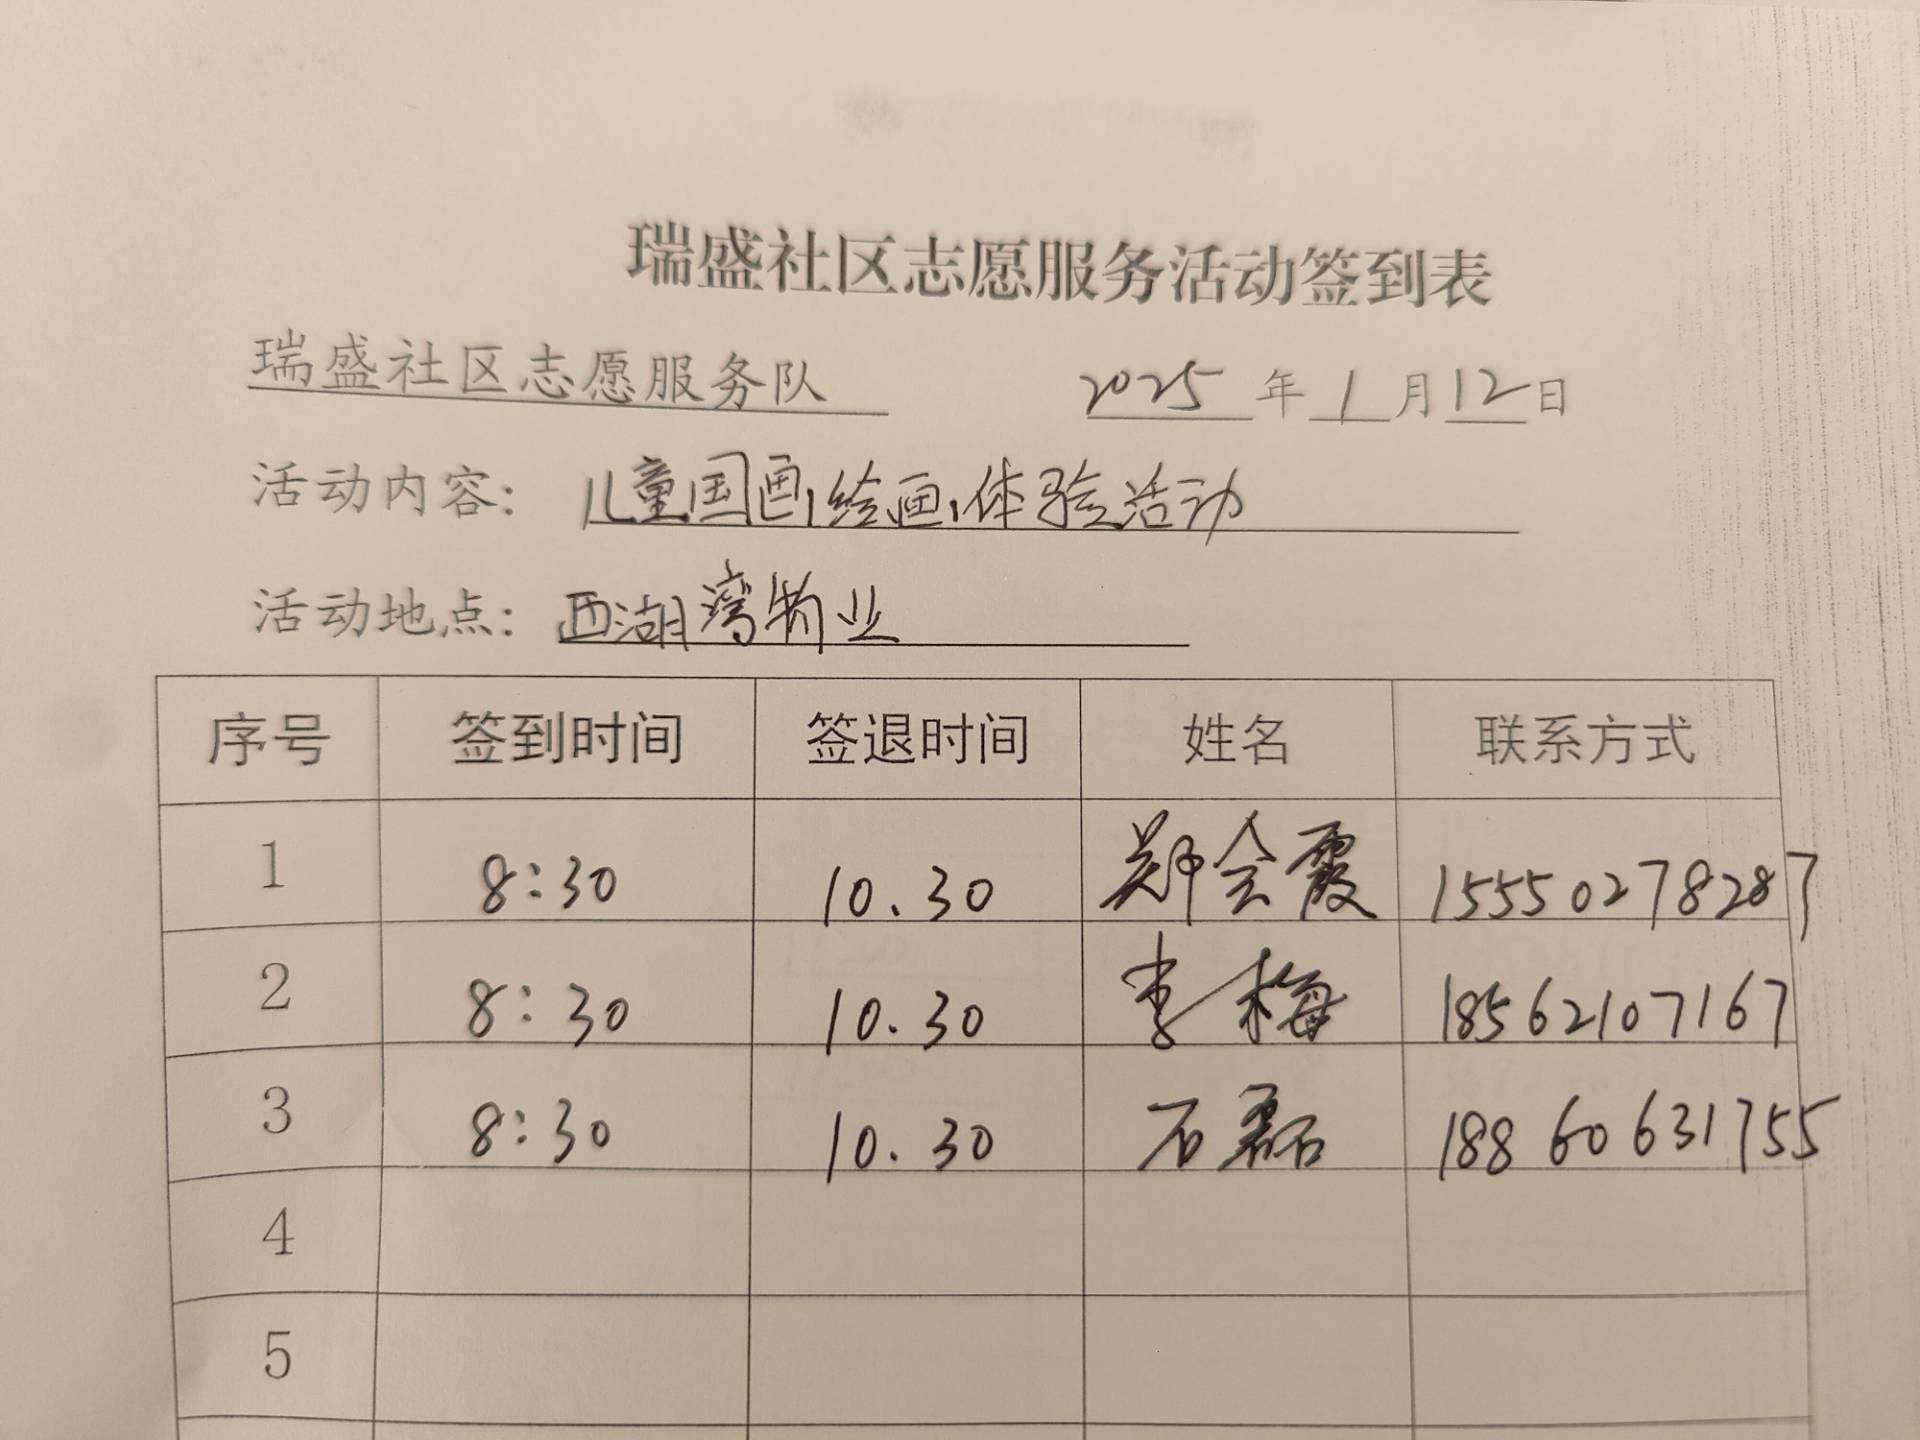 瑞盛社区志愿服务活动签到表
瑞盛社区志愿服务队 2025年1月12日
活动内容：儿童国画,绘画,体验活动
活动地点：西湖湾物业
序号 签到时间 签退时间 姓名 联系方式
1 8:30 10.30 郑会霞 15550278287
2 8:30 10.30 李梅 18562107167
3 8:30 10.30 石磊 18860631755
4
5